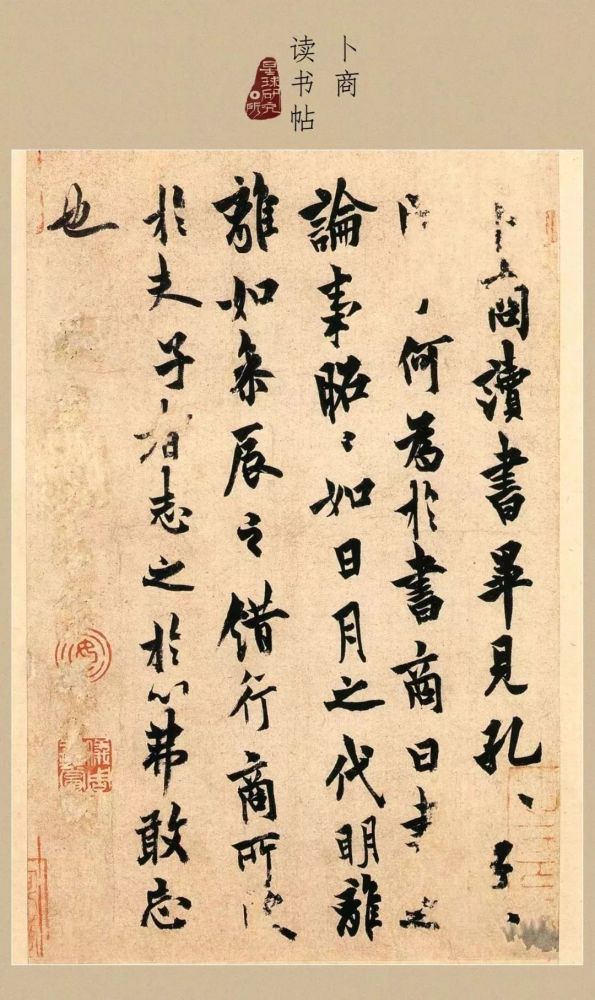 卜商
读书帖
星球研究所
卜商讀書畢見孔、子、
、何為於書商曰書之
論事昭〻如日月之代明離
離如參辰之錯行商所受
於夫子者志之於心弗敢忘
也